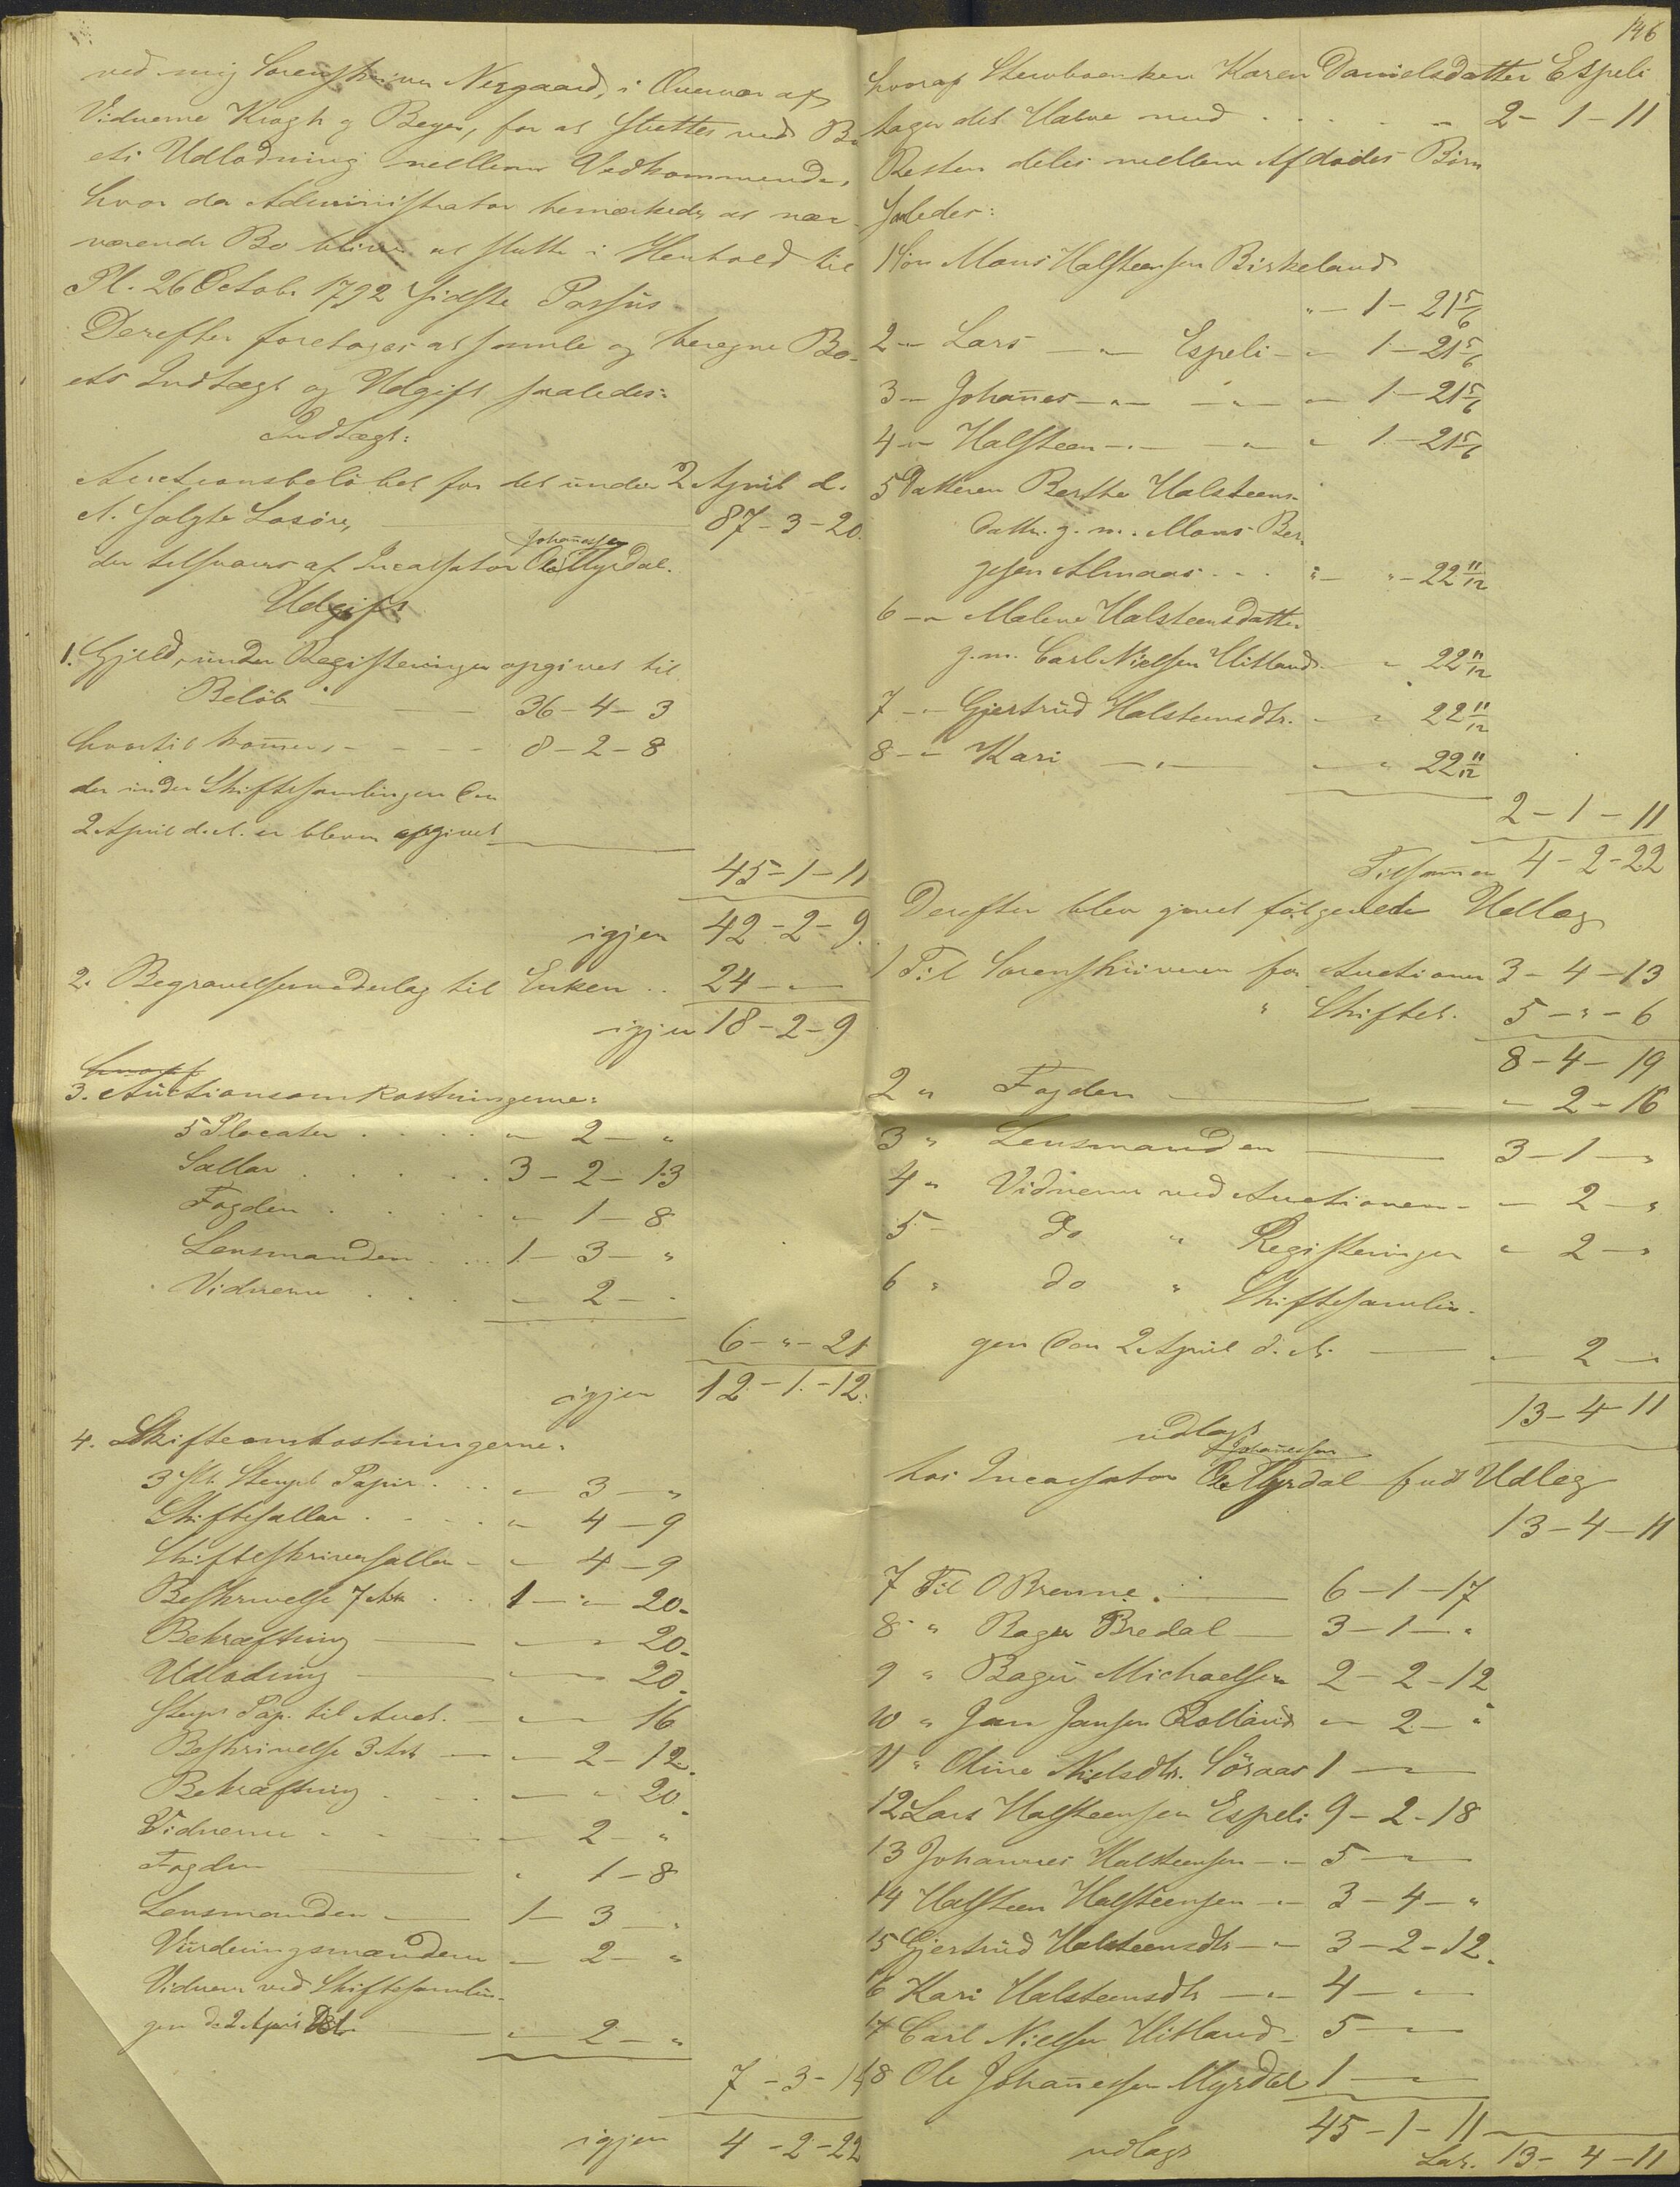 ved mig Sorenskriver Nergaard, i Overvær af
Vidnerne Krogh og Beyer, for at sluttes ved Bo-
ets Udlodning mellem Vedkommende,
hvor da Administrator bemærkede, at nær-
værende Bo bliver at slutte i Henhold til
Pl. 26 Octobr 1792 sidste Passus
Derefter foretoges at samle og beregne Bo-
ets Indtægt og Udgift saaledes:
Indtægt:
Auctionsbeløbet for det under 2 April d.
A. solgte Løsøre, 87-3-20.
Johañessen
der tilsvares af Incassator Ole Myrdal.
Udgift
1. Gjeld, under Registeringen opgivet til
Beløb 36-4-3
hvortil kom̃er 8-2-8
der under Skiftesamlingen den
2 April d.A. er bleven opgivet
45-1-11
igjen 42-2-9.
2. Begravelsesvederlag til Enken .. 24 - "
igjen 18-2-9
hvoraf
3. Auctionsomkostningerne:
5 Placater . . . . " - 2 - "
Sallar . . . . . 3-2-13
Fogden . . . . " - 1 - 8
Lensmanden . . . 1-3-"
Vidnerne . . . " - 2 - "
6-"-21
igjen 12-1-12.
4. Skifteomkostningerne:
3 Stk. Stempl. Papir . . " - 3 - "
Skiftesallar . . . . " - 4 - 9
Skifteskriversallar - " - 4 - 9
Beskrivelse 7 Ark . . 1 - " - 20.
Bekræftning - " - " - 20.
Udlodning - " - " - 20.
Stempl. Pap. til Auct. - " - " 16
Beskrivelse 3 Ark - " - 2 - 12.
Bekræftning . . . " - " 20.
Vidnerne - " - 2 - "
Fogden " 1 - 8
Lensmanden - 1 - 3 - "
Vurderingsmændene " - 2 - "
Vidnerne ved Skiftesamlin-
gen d. 2 April d.A. " - 2 - "
7-3-14
igjen 4-2-22
146
hvoraf Stervboenken Karen Danielsdatter Espeli
tager det Halve med . . . . . . 2-1-11
Resten deles mellem Afdødes Børn
saaledes:
1 Søn Mons Halsteensen Birkeland
" - 1 - 21 5/6
2 " Lars - " - Espeli - " 1 - 21 5/6
3 " Johañes - " - " - " 1 - 21 5/6
4 " Halsteen - " - " - " 1 - 21 5/6
5 Datteren Berthe Halsteens-
datter g. m. Mons Bør-
gesen Almaas . . . " - " - 22 11/12
6 - " Malene Halsteensdatter
g.m. Carl Nielsen Hitland - " 22 11/12
7 - " Gjertrud Halsteensdtr. - " 22 11/12
8 - " Kari - " - " " 22 11/12
2-1-11
Tilsam̃en 4-2-22
Derefter blev gjort følgende Udlæg
1 Til Sorenskriveren for Auctionen 3-4-13
" Skiftet. 5-"-6
8-4-19
2 " Fogden - " - 2 - 16
3 " Lensmanden - 3 - 1 - "
4 " Vidnerne ved Auctionen - " - 2 - "
5 - do " Registeringen " 2 - "
6 " do " Skiftesamlin-
gen den 2 April d. A. - " - 2 - "
13-4-11
udlagt
Johañessen
hos Incassator Ole Myrdal fuldt Udlæg
13-4-11
7 Til O Brenne . - 6-1-17
8 " Bager Bredal - 3-1-"
9 " Bager Michaelsen 2-2-12
10 " Jan Jansen Rolland " - 2 - "
11 " Oline Nielsdtr. Söraas 1 - "
12 Lars Halsteensen Espeli 9-2-18
13 Johannes Halsteensen - " 5 - "
14 Halsteen Halsteensen - " 3-4-"
15 Gjertrud Halsteensdtr - " 3-2-12.
16 Kari Halsteensdtr - " 4 - "
17 Carl Nielsen Hitland - 5 - "
18 Ole Johañessen Myrdal 1 - "
45-1-11
udlagt Lat. 13-4-11